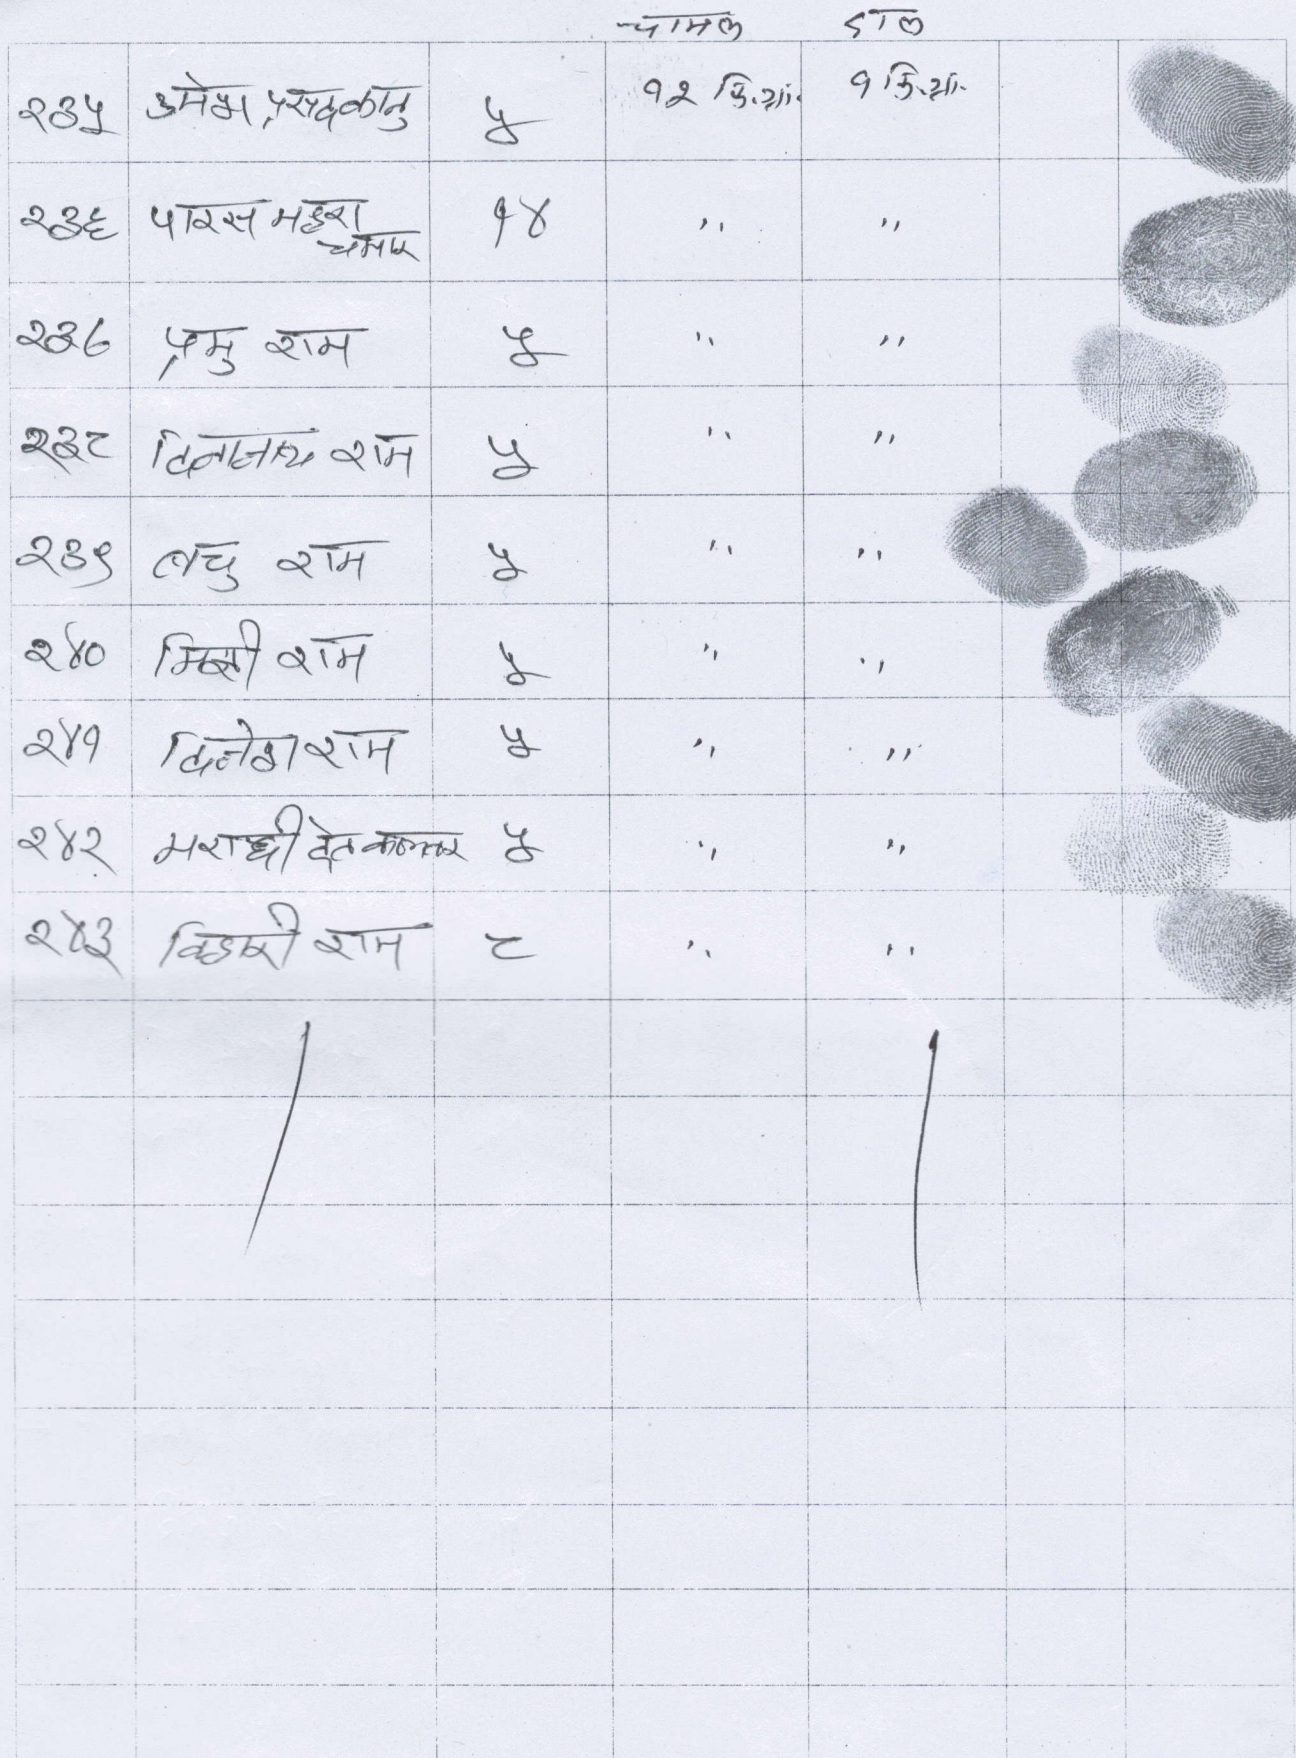 चामल दाल
२३५ उमेश प्रसाद कानु ५ १२ कि.ग्रा. १ कि.ग्रा.
२३६ पारस महरा १४ " "
चमार
२३७ प्रभु राम ५ " "
२३८ दिनानाथ राम ५ " "
२३९ लचु राम ५ " "
२४० मिश्री राम ५ " "
२४१ दिनेश राम ५ " "
२४२ मराछी ५ " "
२४३ बिहारी राम ८ " "